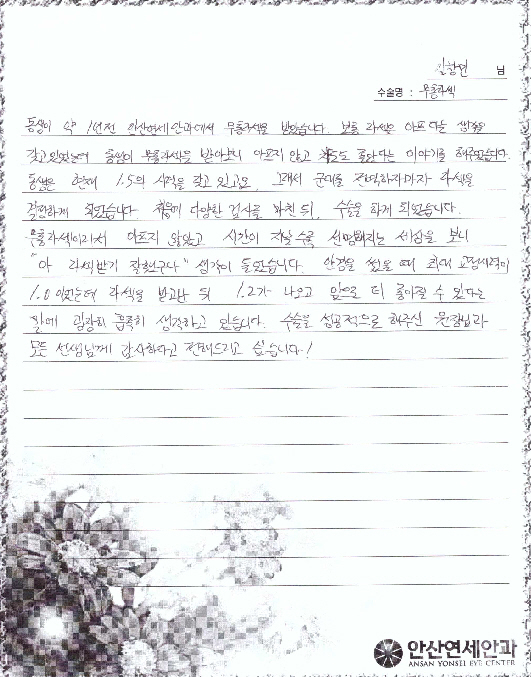 님
수술명 : 무통라섹
동생이 약 1년전 안산연세안과에서 무통라섹을 받았습니다. 보통 라섹은 아프다는 생각을
갖고 있었는데 동생이 무통라섹을 받아보니 아프지 않고 좋다는 이야기를 해주었습니다.
동생은 현재 1.5의 시력을 갖고 있고요, 그래서 군대를 전역하자마자 라섹을
결심하게 되었습니다. 처음에 다양한 검사를 마친 뒤, 수술을 하게 되었습니다.
무통라섹이라서 아프지 않았고 시간이 지날수록 선명해지는 세상을 보니
"아 라섹받기 잘했구나" 생각이 들었습니다. 안경을 썼을 때 최대 교정시력이
1.0 이었는데 라섹을 받고난 뒤 1.2가 나오고 앞으로 더 좋아질 수 있다는
말에 굉장히 흡족히 생각하고 있습니다. 수술을 성공적으로 해주신 원장님과
모든 선생님께 감사하다고 전해드리고 싶습니다!
안산연세안과
ANSAN YONSEI EYE CENTER